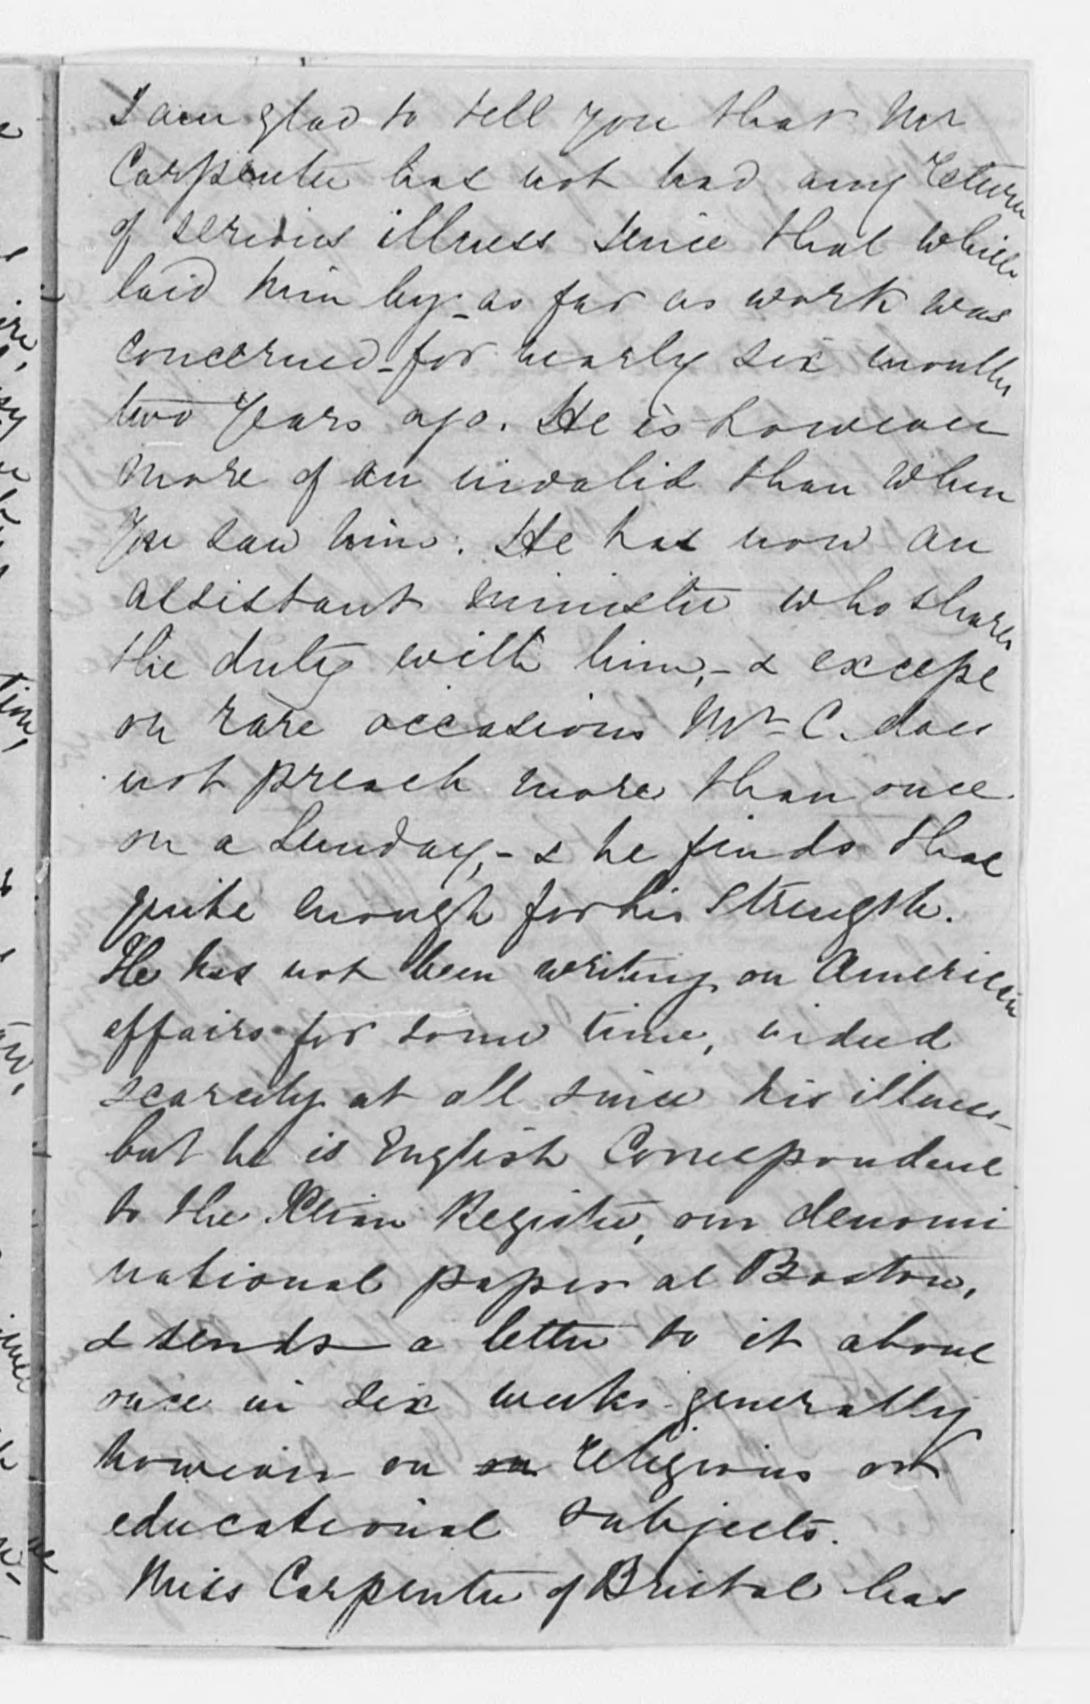 I am glad to tell you that Mr
Carpenter has not had any return
of serious illness since that which
laid him by - as far as work was
concerned - for nearly six months
two years ago. He is however
more of an invalid than when
you saw him. He has now an
assistant minister who shares
the duty with him, - & except
on rare occasions Mr C. does
not preach more than once
on a Sunday, - & he finds that
quite enough for his strength.
He has not been writing on American
affairs for some time, indeed
scarcely at all since his illness -
but he is English Correspondent
to the Xtian Register, our denomi
national paper at Boston,
& sends a letter to it about
once in six weeks generally
however on religious or
educational subjects.
Miss Carpenter of Bristol has